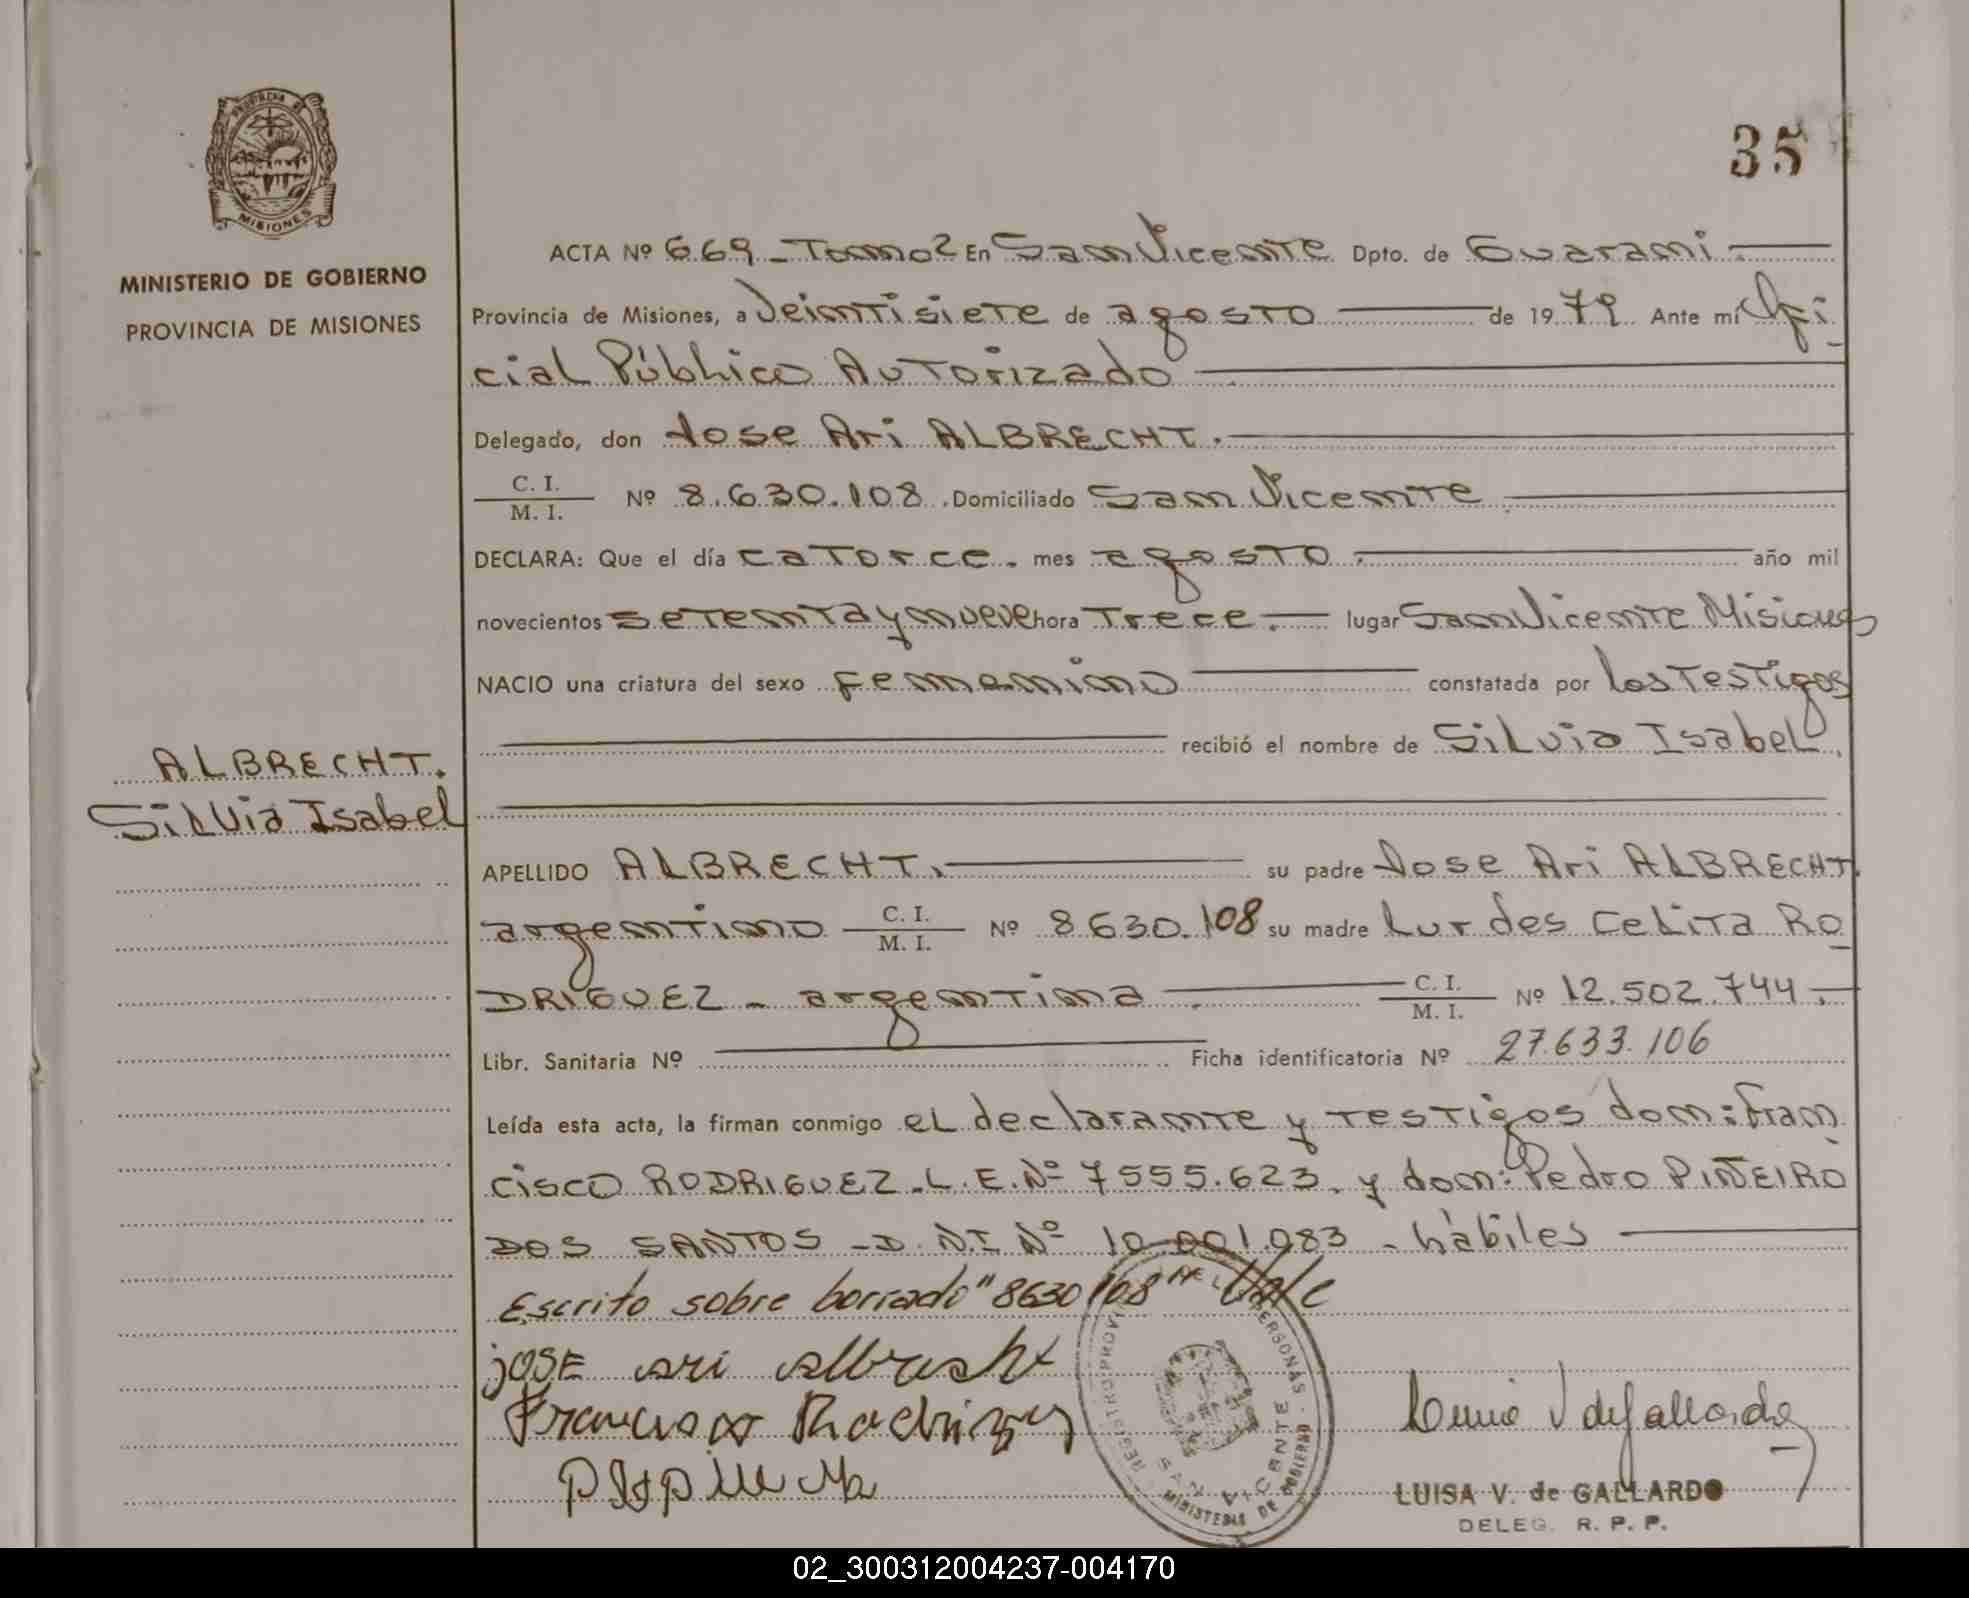 35
PROVINCIA DE
MISIONES
MINISTERIO DE GOBIERNO
PROVINCIA DE MISIONES
ACTA Nº 669 - Tomo 2 En San Vicente Dpto. de Guarani
Provincia de Misiones, a Veintisiete de agosto de 1979 Ante mí Ofi
cial Público Autorizado
Delegado, don Jose Ari ALBRECHT.
C. I.
M. I. Nº 8.630.108. Domiciliado San Vicente
DECLARA: Que el día catorce. mes agosto. año mil
novecientos setenta y nueve hora Trece. lugar San Vicente Misiones
NACIO una criatura del sexo femenino constatada por los Testigos
recibió el nombre de Silvia Isabel.
ALBRECHT.
Silvia Isabel
APELLIDO ALBRECHT. su padre Jose Ari ALBRECHT.
argentino C. I.
M. I. Nº 8630.108 su madre Lurdes Celita RO
DRIGUEZ - argentina. C. I.
M. I. Nº 12.502.744.
Libr. Sanitaria Nº Ficha identificatoria Nº 27.633.106
Leída esta acta, la firman conmigo el declarante y testigos don: Fran
cisco RODRIGUEZ. L.E. Nº 7555.623. y don: Pedro PIÑEIRO
DOS SANTOS - D.N.I Nº 10.001.983 - hábiles
Escrito sobre borrado "8630108" Vale
jOSE ari albrecht
Francisco Rodriguez
SAN VICENTE
MINISTERIO DE GOBIERNO
LUISA V. de GALLARDO
DELEG. R. P. P.
02_300312004237-004170